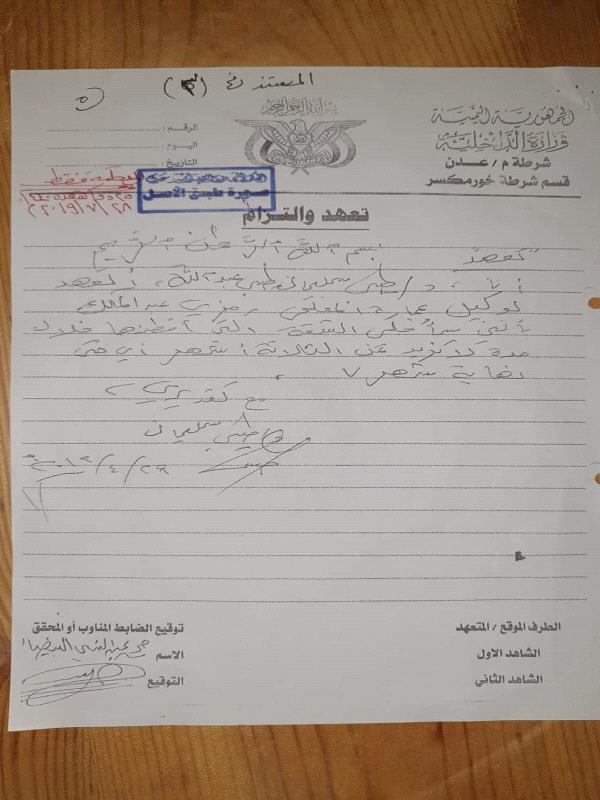 المستند رقم (٣)
٥
بسم الله الرحمن الرحيم
الجمهورية اليمنية
وزارة الداخلية
شرطة م/عدن
قسم شرطة خورمكسر
الرقم :
اليوم :
التاريخ :
للمحكمة فقط
صورة طبق الأصل
٢٠١٩/٧/٢٨
تعهد والتزام
بسم الله الرحمن الرحيم
تعهد
أنا ، د/ سليمان عبدالله ، أتعهد
لوكيل عمارة رمزي عبدالمالك
بأنني سأخلي الشقة التي أقطنها خلال
مدة لا تزيد عن الثلاثة أشهر أي حتى
نهاية شهر ٧ ،
مع تقديري ،
سليمان
٢٠١٢/٤/٢٩
الطرف الموقع / المتعهد
الشاهد الاول
الشاهد الثاني
توقيع الضابط المناوب أو المحقق
الاسم
التوقيع